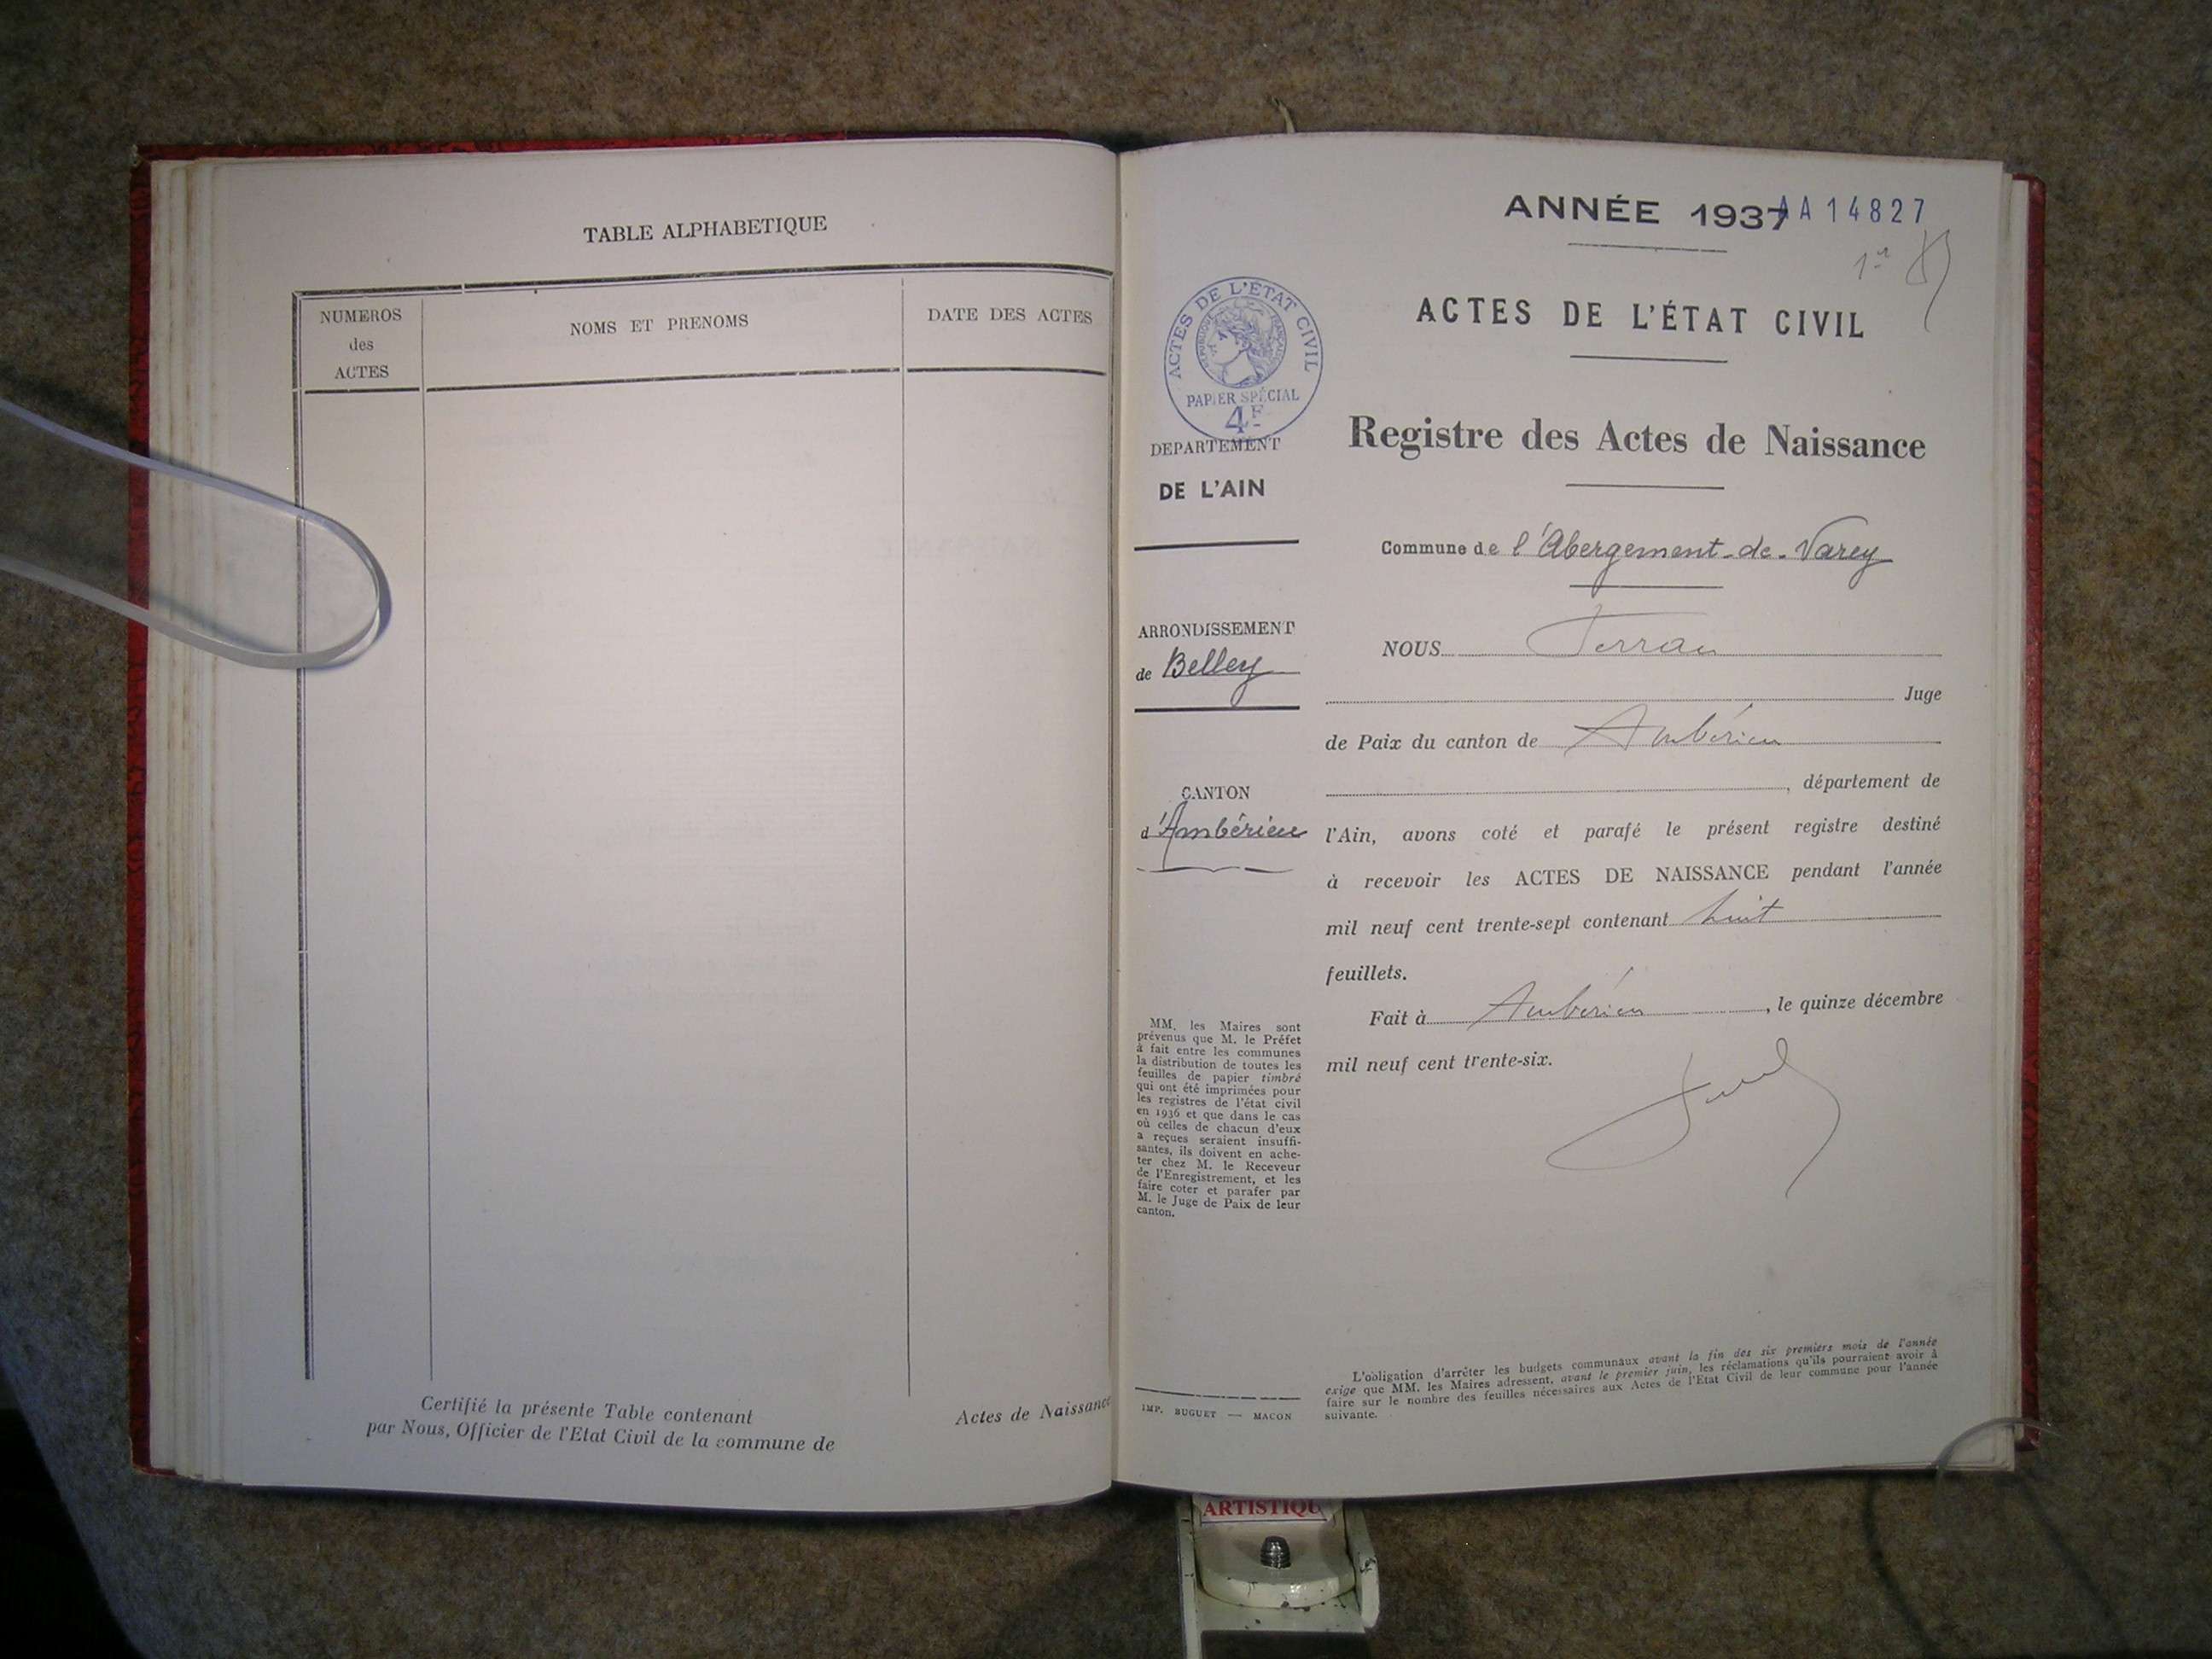 TABLE ALPHABETIQUE
NUMEROS
des
ACTES
NOMS ET PRENOMS
DATE DES ACTES
Certifié la présente Table contenant
Actes de Naissance
par Nous, Officier de l'Etat Civil de la commune de
ANNÉE 1937
AA14827
1er
ACTES DE L'ÉTAT CIVIL
RÉPUBLIQUE FRANÇAISE
PAPIER SPÉCIAL
4F
DEPARTEMENT
DE L'AIN
ARRONDISSEMENT
de Belley
CANTON
d'Ambérieu
MM. les Maires sont
prévenus que M. le Préfet
à fait entre les communes
la distribution de toutes les
feuilles de papier timbré
qui ont été imprimées pour
les registres de l'état civil
en 1936 et que dans le cas
où celles de chacun d'eux
a reçues seraient insuffi-
santes, ils doivent en ache-
ter chez M. le Receveur
de l'Enregistrement, et les
faire coter et parafer par
M. le Juge de Paix de leur
canton.
IMP. BUGUET — MACON
ACTES DE L'ÉTAT CIVIL
Registre des Actes de Naissance
Commune de l'Abergement-de-Varey
NOUS
Juge
de Paix du canton de Ambérieu
, département de
l'Ain, avons coté et parafé le présent registre destiné
à recevoir les ACTES DE NAISSANCE pendant l'année
mil neuf cent trente-sept contenant huit
feuillets.
Fait à Ambérieu, le quinze décembre
mil neuf cent trente-six.
L'obligation d'arrêter les budgets communaux avant la fin des six premiers mois de l'année
exige que MM. les Maires adressent, avant le premier juin, les réclamations qu'ils pourraient avoir à
faire sur le nombre des feuilles nécessaires aux Actes de l'Etat Civil de leur commune pour l'année
suivante.
ARTISTIQU